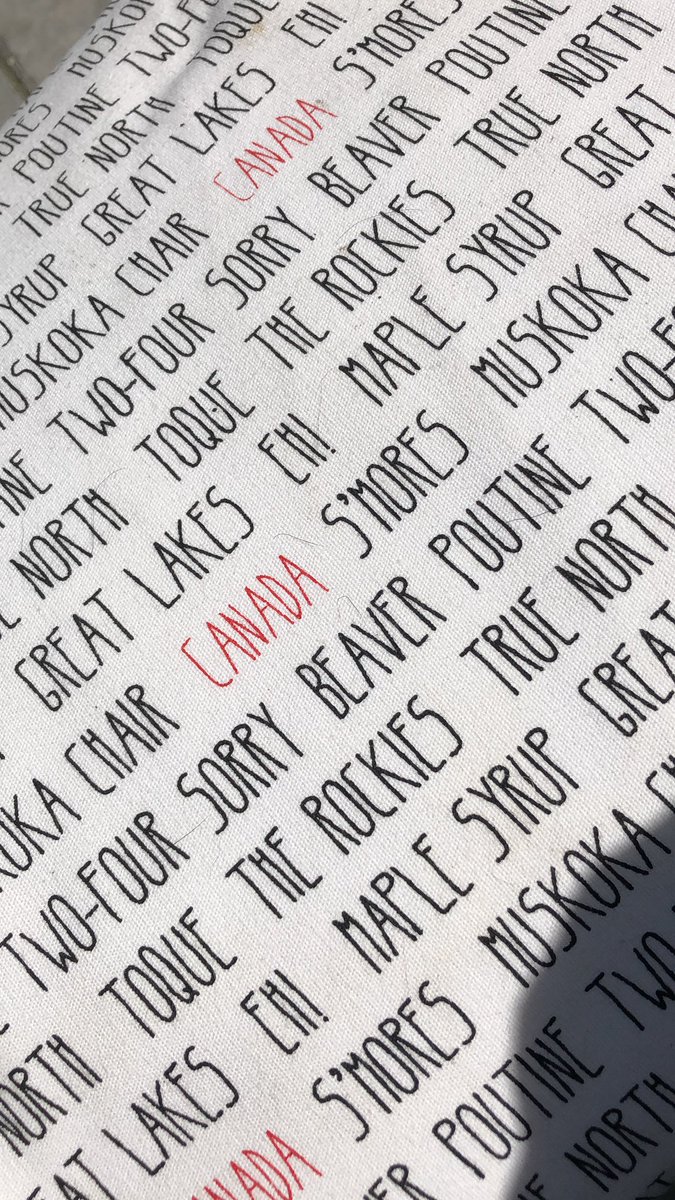 MORES MUSKO
POUTINE TWO-F
TRUE NORTH TOQUE
SYRUP GREAT LAKES EH!
MUSKOKA CHAIR CANADA S'MORES
INE TWO-FOUR SORRY BEAVER POUTINE
NORTH TOQUE THE ROCKIES TRUE NORTH
GREAT LAKES EH! MAPLE SYRUP GREAT
KOKA CHAIR CANADA S'MORES MUSKOKA CHA
TWO-FOUR SORRY BEAVER POUTINE TWO-F
NORTH TOQUE THE ROCKIES TRUE NORTH
EAT LAKES EH! MAPLE SYRUP GREAT
ANADA S'MORES MUSKOKA CH
VER POUTINE TWO-
NORTH